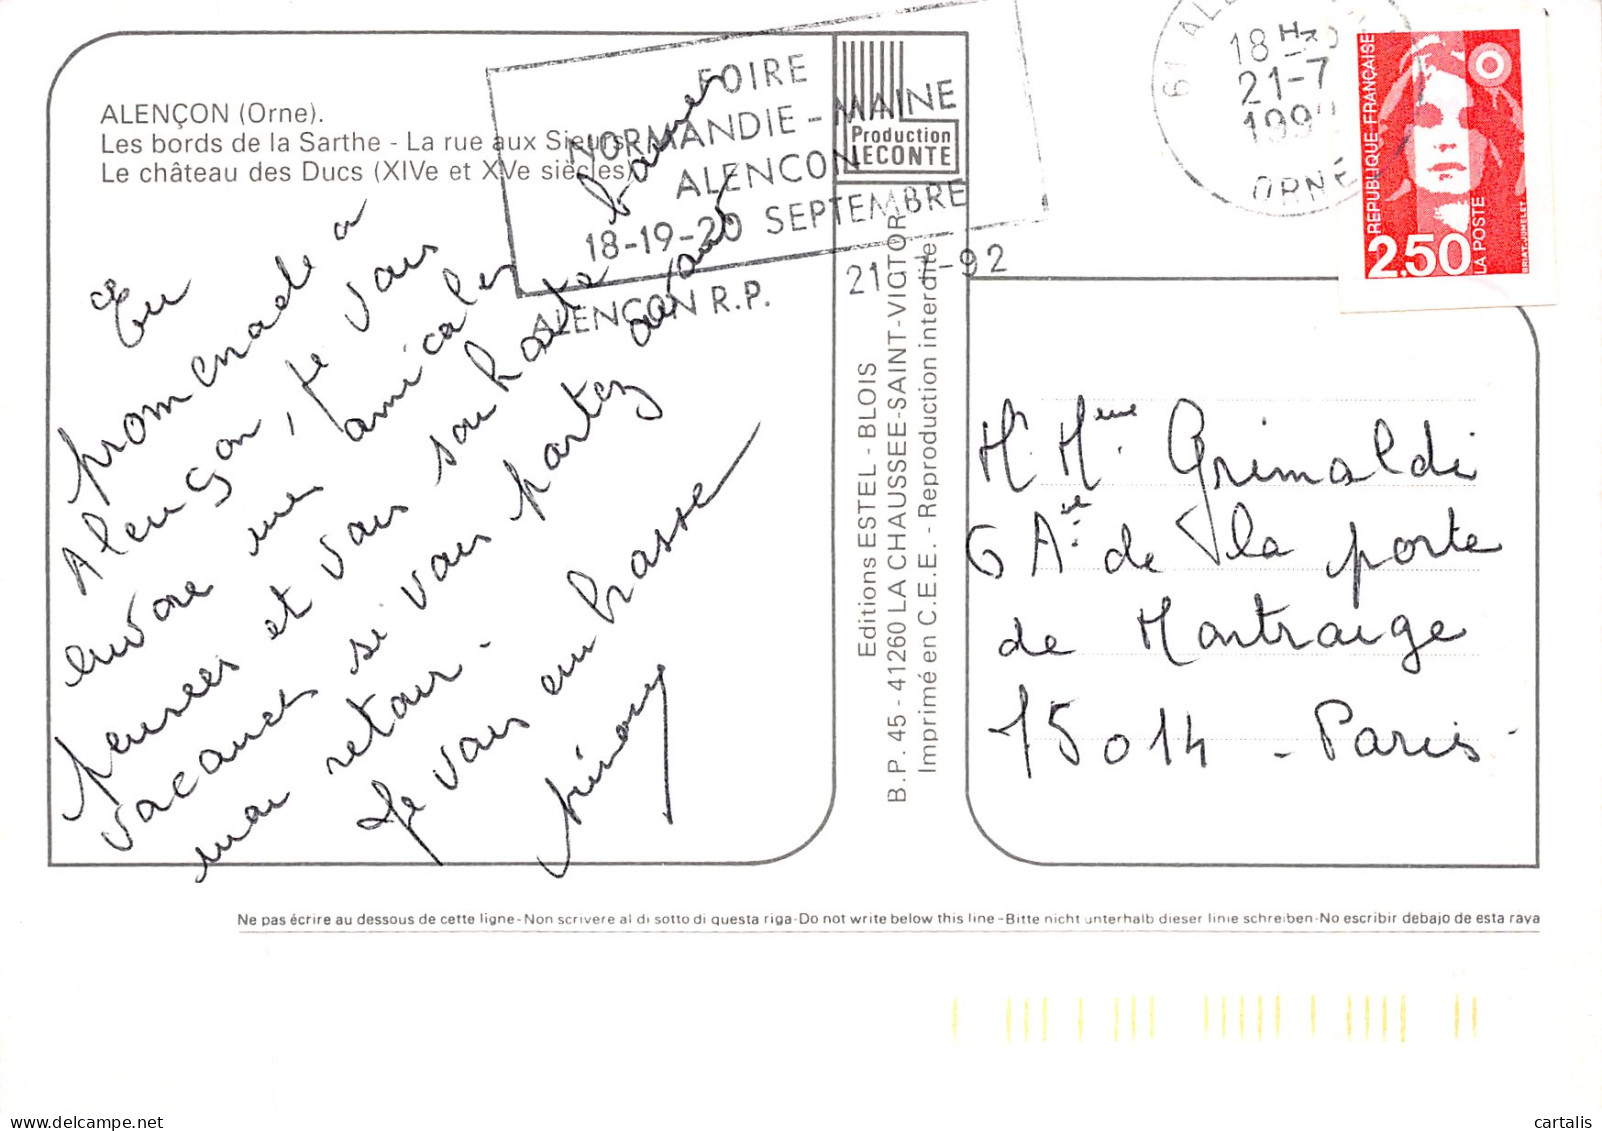 ALENÇON (Orne).
Les bords de la Sarthe - La rue aux Sieurs
Le château des Ducs (XIVe et XVe siècles)
FOIRE
NORMANDIE - MAINE
ALENCON
18-19-20 SEPTEMBRE
ALENCON R.P.
21-7-92
Production
LECONTE
61 ALEN
18 H
21-7
199
ORNE
REPUBLIQUE FRANÇAISE
2,50
LA POSTE
BRIAT-JUMELET
En
promenade à
Alençon, je vous
envoie mes amicales
pensées et vous souhaite bonnes
vacances si vous partez avant
mon retour.
Je vous embrasse
Editions ESTEL - BLOIS
B.P. 45 - 41260 LA CHAUSSEE-SAINT-VICTOR
Imprimé en C.E.E. - Reproduction interdite
Mr Mme Grimaldi
6 Aue de la porte
de Montrouge
75014 - Paris
Ne pas écrire au dessous de cette ligne-Non scrivere al di sotto di questa riga-Do not write below this line-Bitte nicht unterhalb dieser linie schreiben-No escribir debajo de esta raya
cartalis